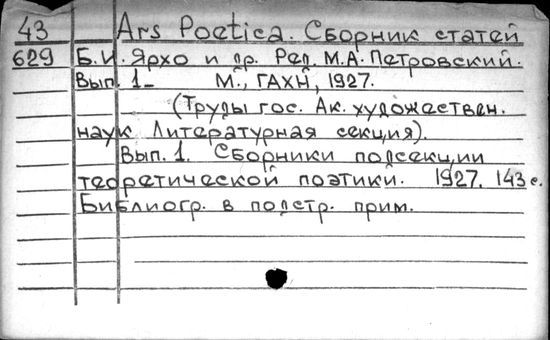 43 Ars Poetica. Сборник статей
629 Б.И. Ярхо и др. Ред. М.А. Петровский.
Вып. 1- М., ГАХН, 1927.
(Труды гос. Ак. художествен.
наук Литературная секция).
Вып. 1. Сборники подсекции
теоретической поэтики. 1927. 143 с.
Библиогр. в подстр. прим.